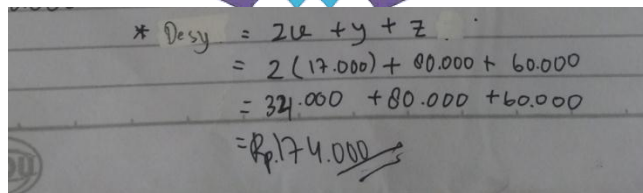 * Desy = 2x + y + z
= 2(17.000) + 80.000 + 60.000
= 34.000 + 80.000 + 60.000
= Rp.174.000